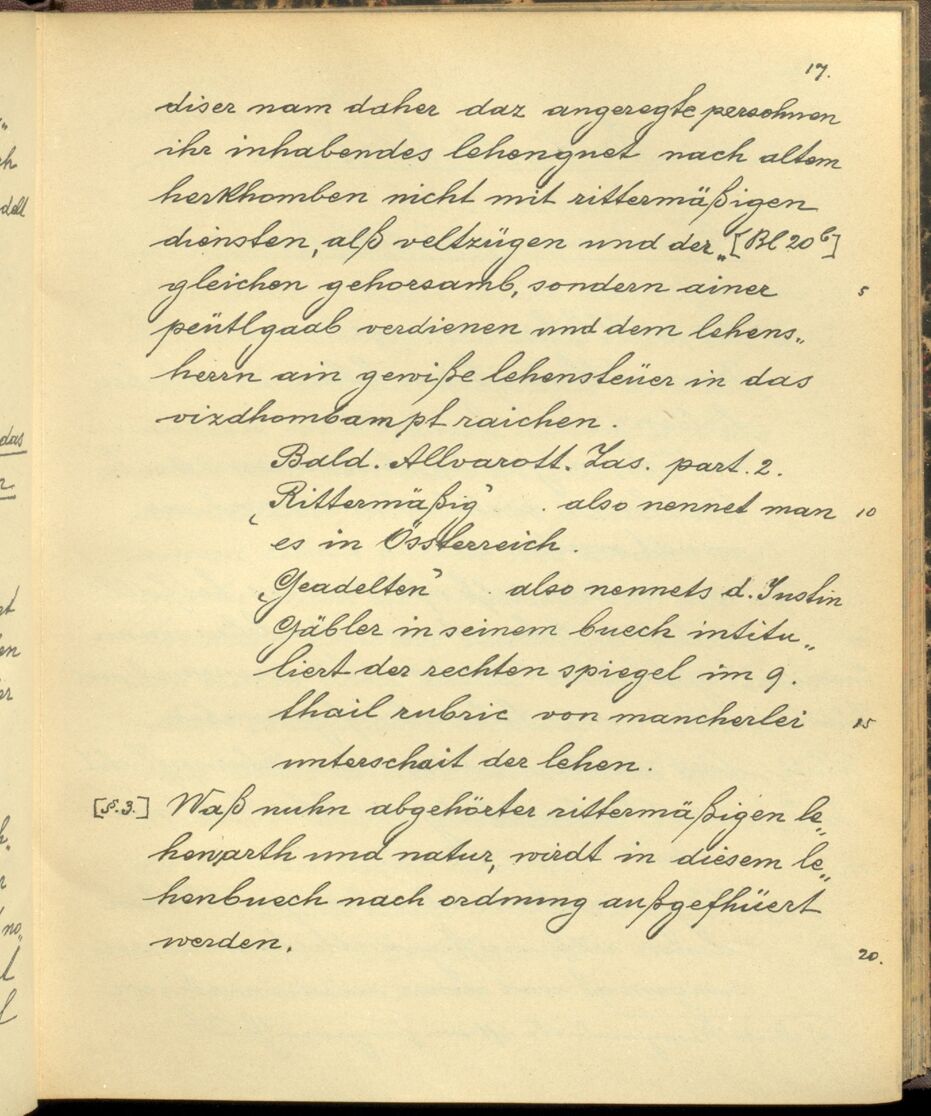 17.
diser nam daher daz angeregte persohnen
ihr inhabendes lehenguet nach altem
herkhomben nicht mit rittermäßigen
diensten, alß veltzügen und der„ [Bl 20b]
gleichen gehorsamb, sondern ainer 5
peütlgaab verdienen und dem lehens„
herrn ain gewiße lehensteüer in das
vizdhombampt raichen.
Bald. Allvarott. Zas. part. 2.
„Rittermäßig” . also nennet man 10
es in Össterreich.
„Geadelten” . also nennets d. Justin
Gäbler in seinem buech intitu„
liert der rechten spiegel im 9.
thail rubric von mancherlei 15
unterschait der lehen.
[§.3.] Waß nuhn abgehörter rittermäßigen le„
hen,arth und natur, wirdt in diesem le„
henbuech nach ordnung außgefhüert
werden. 20.
das